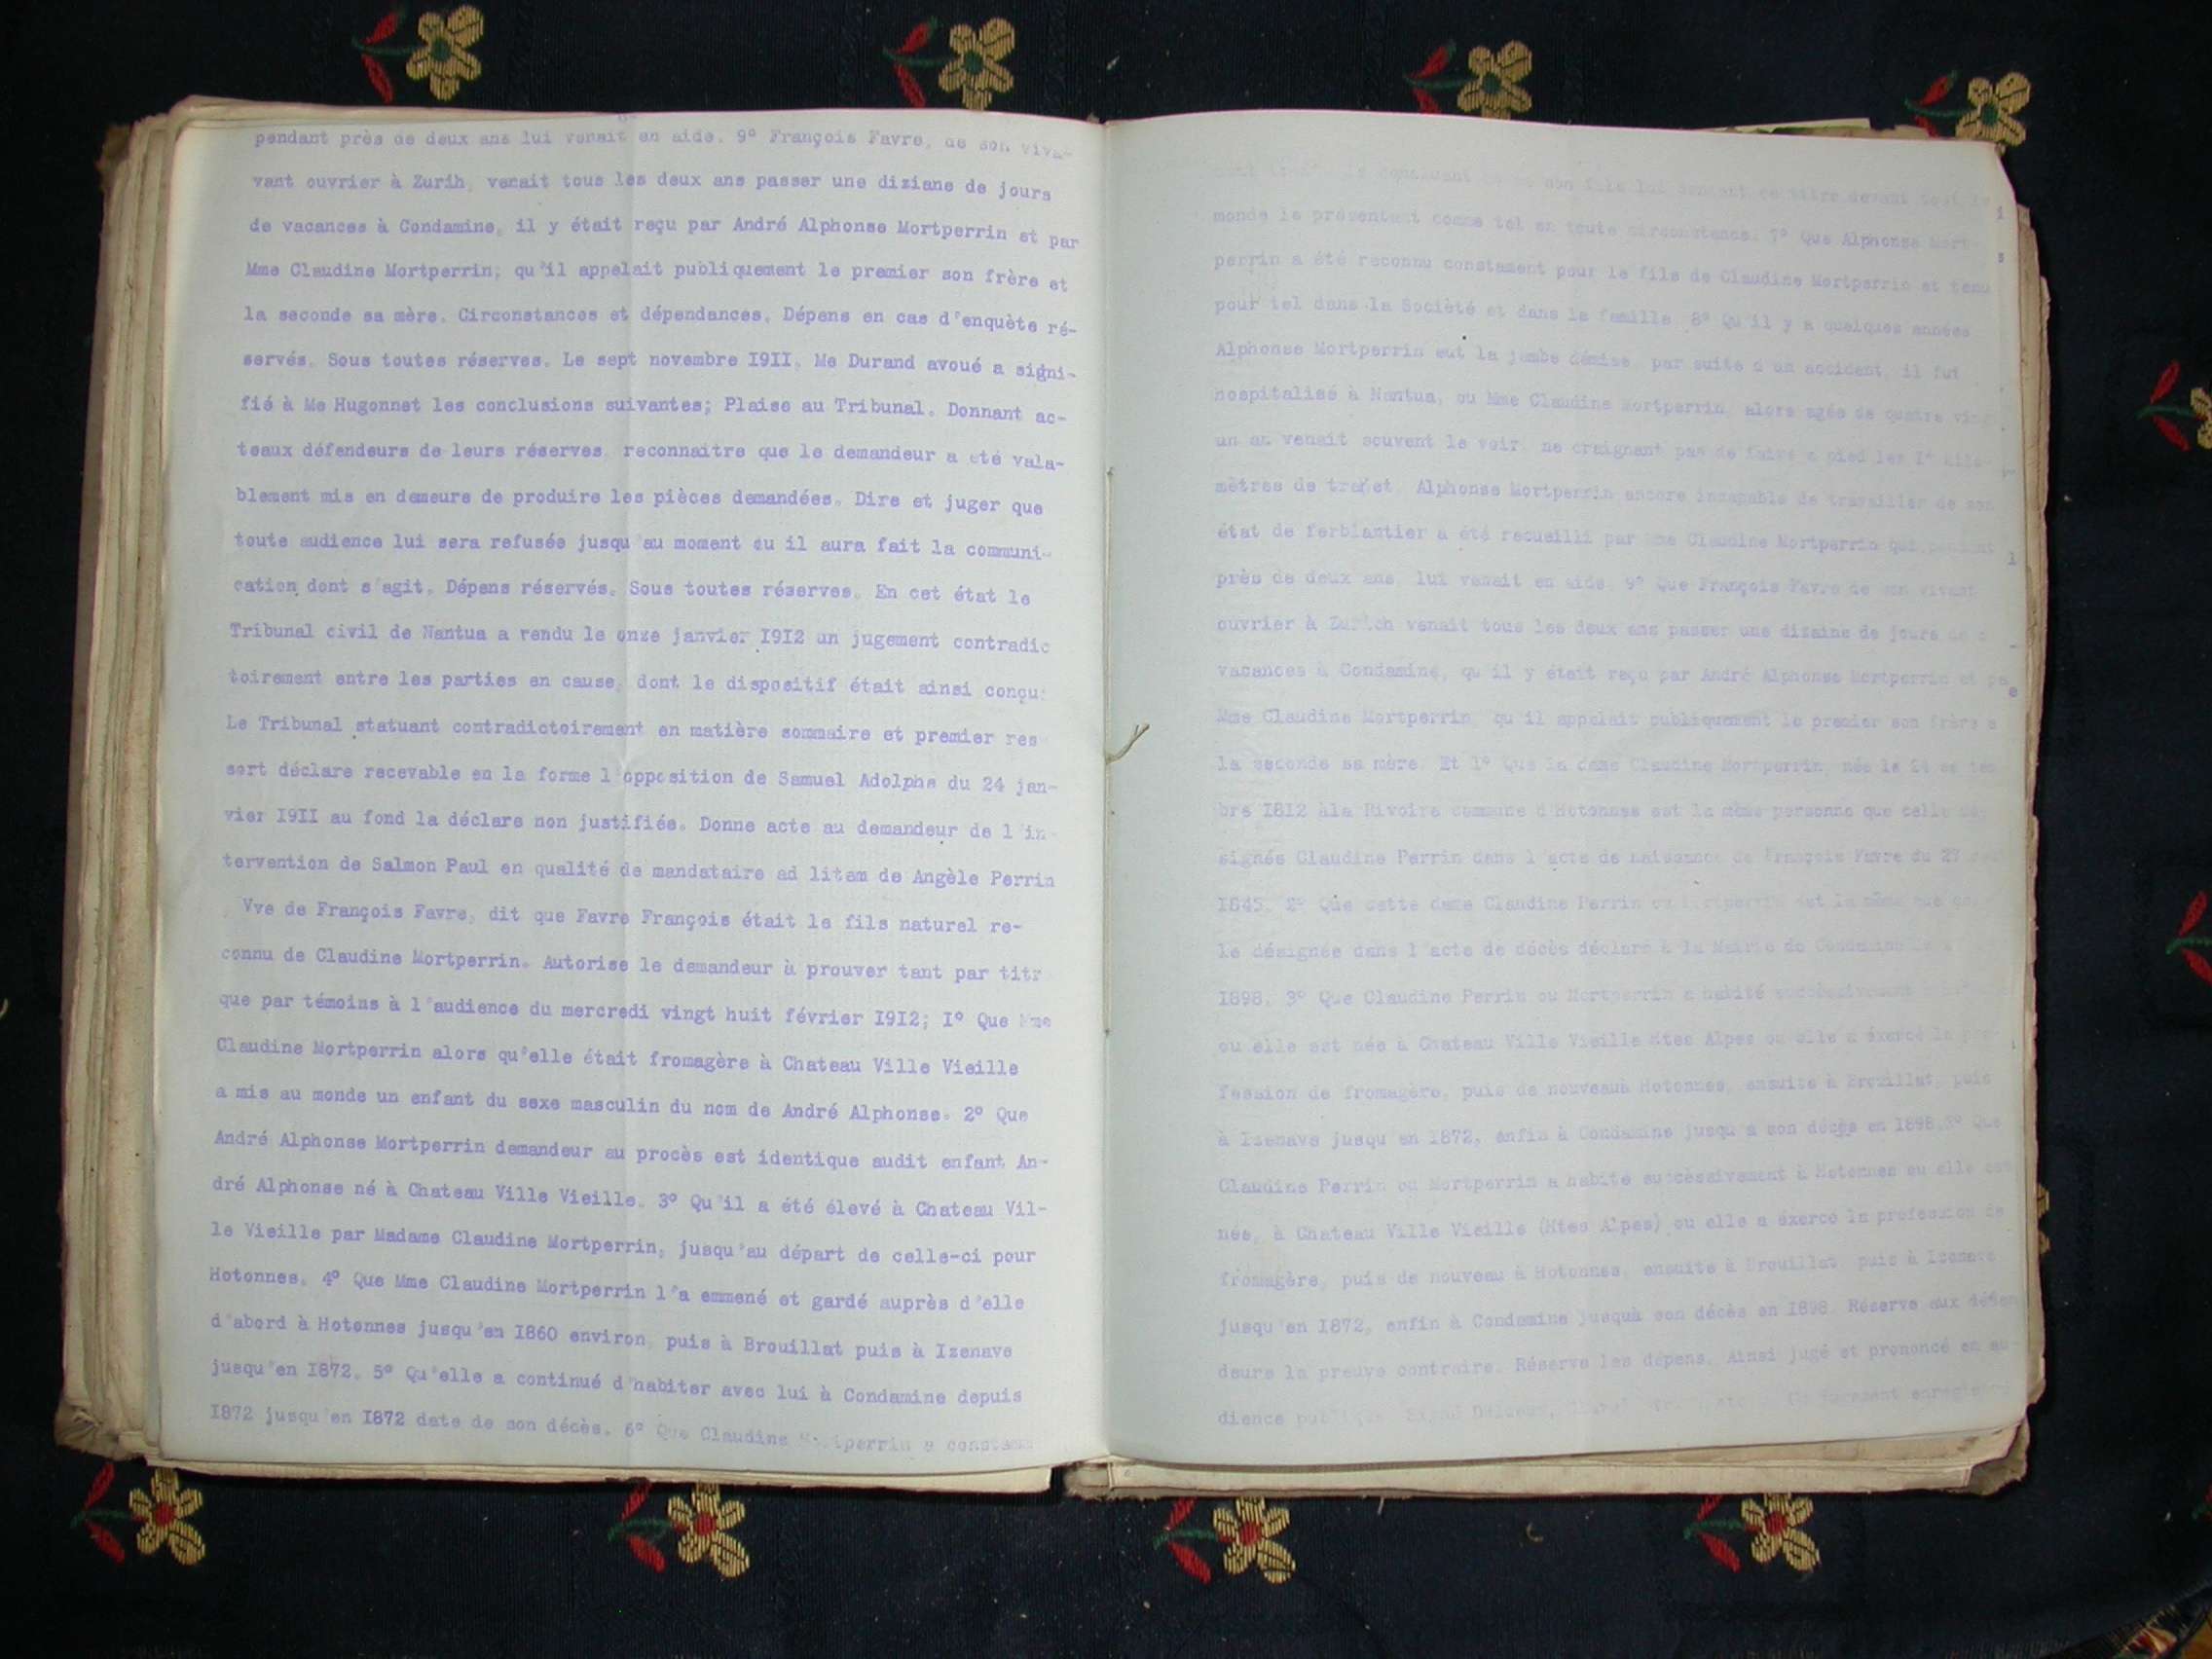 pendant près de deux ans lui venait en aide. 9° François Favre, de son viva-
vant ouvrier à Zurih, venait tous les deux ans passer une diziane de jours
de vacances à Condamine, il y était reçu par André Alphonse Mortperrin et par
Mme Claudine Mortperrin; qu'il appelait publiquement le premier son frère et
la seconde sa mère. Circonstances et dépendances. Dépens en cas d'enquète ré-
servés. Sous toutes réserves. Le sept novembre I9II. Me Durand avoué a signi-
fié à Me Hugonnet les conclusions suivantes; Plaise au Tribunal. Donnant ac-
teaux défendeurs de leurs réserves, reconnaitre que le demandeur a été vala-
blement mis en demeure de produire les pièces demandées. Dire et juger que
toute audience lui sera refusée jusqu'au moment ou il aura fait la communi-
cation dont s'agit. Dépens réservés. Sous toutes réserves. En cet état le
Tribunal civil de Nantua a rendu le onze janvier I9I2 un jugement contradic
toirement entre les parties en cause, dont le dispositif était ainsi conçu:
Le Tribunal statuant contradictoirement en matière sommaire et premier res
sort déclare recevable en la forme l'opposition de Samuel Adolphe du 24 jan-
vier I9II au fond la déclare non justifiée. Donne acte au demandeur de l'in-
tervention de Salmon Paul en qualité de mandataire ad litem de Angèle Perrin
Vve de François Favre, dit que Favre François était le fils naturel re-
connu de Claudine Mortperrin. Autorise le demandeur à prouver tant par titr
que par témoins à l'audience du mercredi vingt huit février I9I2; I° Que Mme
Claudine Mortperrin alors qu'elle était fromagère à Chateau Ville Vieille
a mis au monde un enfant du sexe masculin du nom de André Alphonse. 2° Que
André Alphonse Mortperrin demandeur au procès est identique audit enfant An-
dré Alphonse né à Chateau Ville Vieille. 3° Qu'il a été élevé à Chateau Vil-
le Vieille par Madame Claudine Mortperrin, jusqu'au départ de celle-ci pour
Hotonnes. 4° Que Mme Claudine Mortperrin l'a emmené et gardé auprès d'elle
d'abord à Hotonnes jusqu'en I860 environ, puis à Brouillat puis à Izenave
jusqu'en I872. 5° Qu'elle a continué d'habiter avec lui à Condamine depuis
I872 jusqu'en I872 date de son décès. 6° Que Claudine Mortperrin a constamm
son fils lui donnant ce titre devant tout le
monde le présentant comme tel en toute circonstance. 7° Que Alphonse Mort-
perrin a été reconnu constament pour le fils de Claudine Mortperrin et tenu
pour tel dans la Société et dans la famille. 8° Qu'il y a quelques années
Alphonse Mortperrin eut la jambe démise, par suite d'un accident, il fut
hospitalisé à Nantua, ou Mme Claudine Mortperrin, alors agée de quatre ving
un an venait souvent le voir, ne craignant pas de faire à pied les kilo-
mètres de trajet. Alphonse Mortperrin encore incapable de travailler de son
état de ferblantier a été recueilli par Mme Claudine Mortperrin qui pendant
près de deux ans, lui venait en aide. 9° Que François Favre de son vivant
ouvrier à Zurich venait tous les deux ans passer une dizaine de jours de
vacances à Condamine, qu'il y était reçu par André Alphonse Mortperrin et pa
Mme Claudine Mortperrin, qu'il appelait publiquement le premier son frère e
la seconde sa mère. Et I° Que la dame Claudine Mortperrin, née le 24
bre I812 àla Rivoire commune d'Hotonnes est la même personne que celle dé-
signée Claudine Perrin dans l'acte de naissance de François Favre du 27
I845. 2° Que cette dame Claudine Perrin ou Mortperrin est la même que
le désignée dans l'acte de décès déclaré à la Mairie de Condamine
I898. 3° Que Claudine Perrin ou Mortperrin a habité successivement
ou elle est née à Chateau Ville Vieille Htes Alpes ou elle a éxercé la pro-
fession de fromagère, puis de nouveauà Hotonnes, ensuite à Brouillat, puis
à Izenave jusqu'en I872, enfin à Condamine jusqu'à son décès en I898.3° Que
Claudine Perrin ou Mortperrin a habité successivement à Hotonnes ou elle est
née, à Chateau Ville Vieille (Htes Alpes) ou elle a éxercé la profession de
fromagère, puis de nouveau à Hotonnes, ensuite à Brouillat, puis à Izenave
jusqu'en I872, enfin à Condamine jusquà son décès en I898. Réserve aux défen
deurs la preuve contraire. Réserve les dépens. Ainsi jugé et prononcé en au-
dience publique. Signé